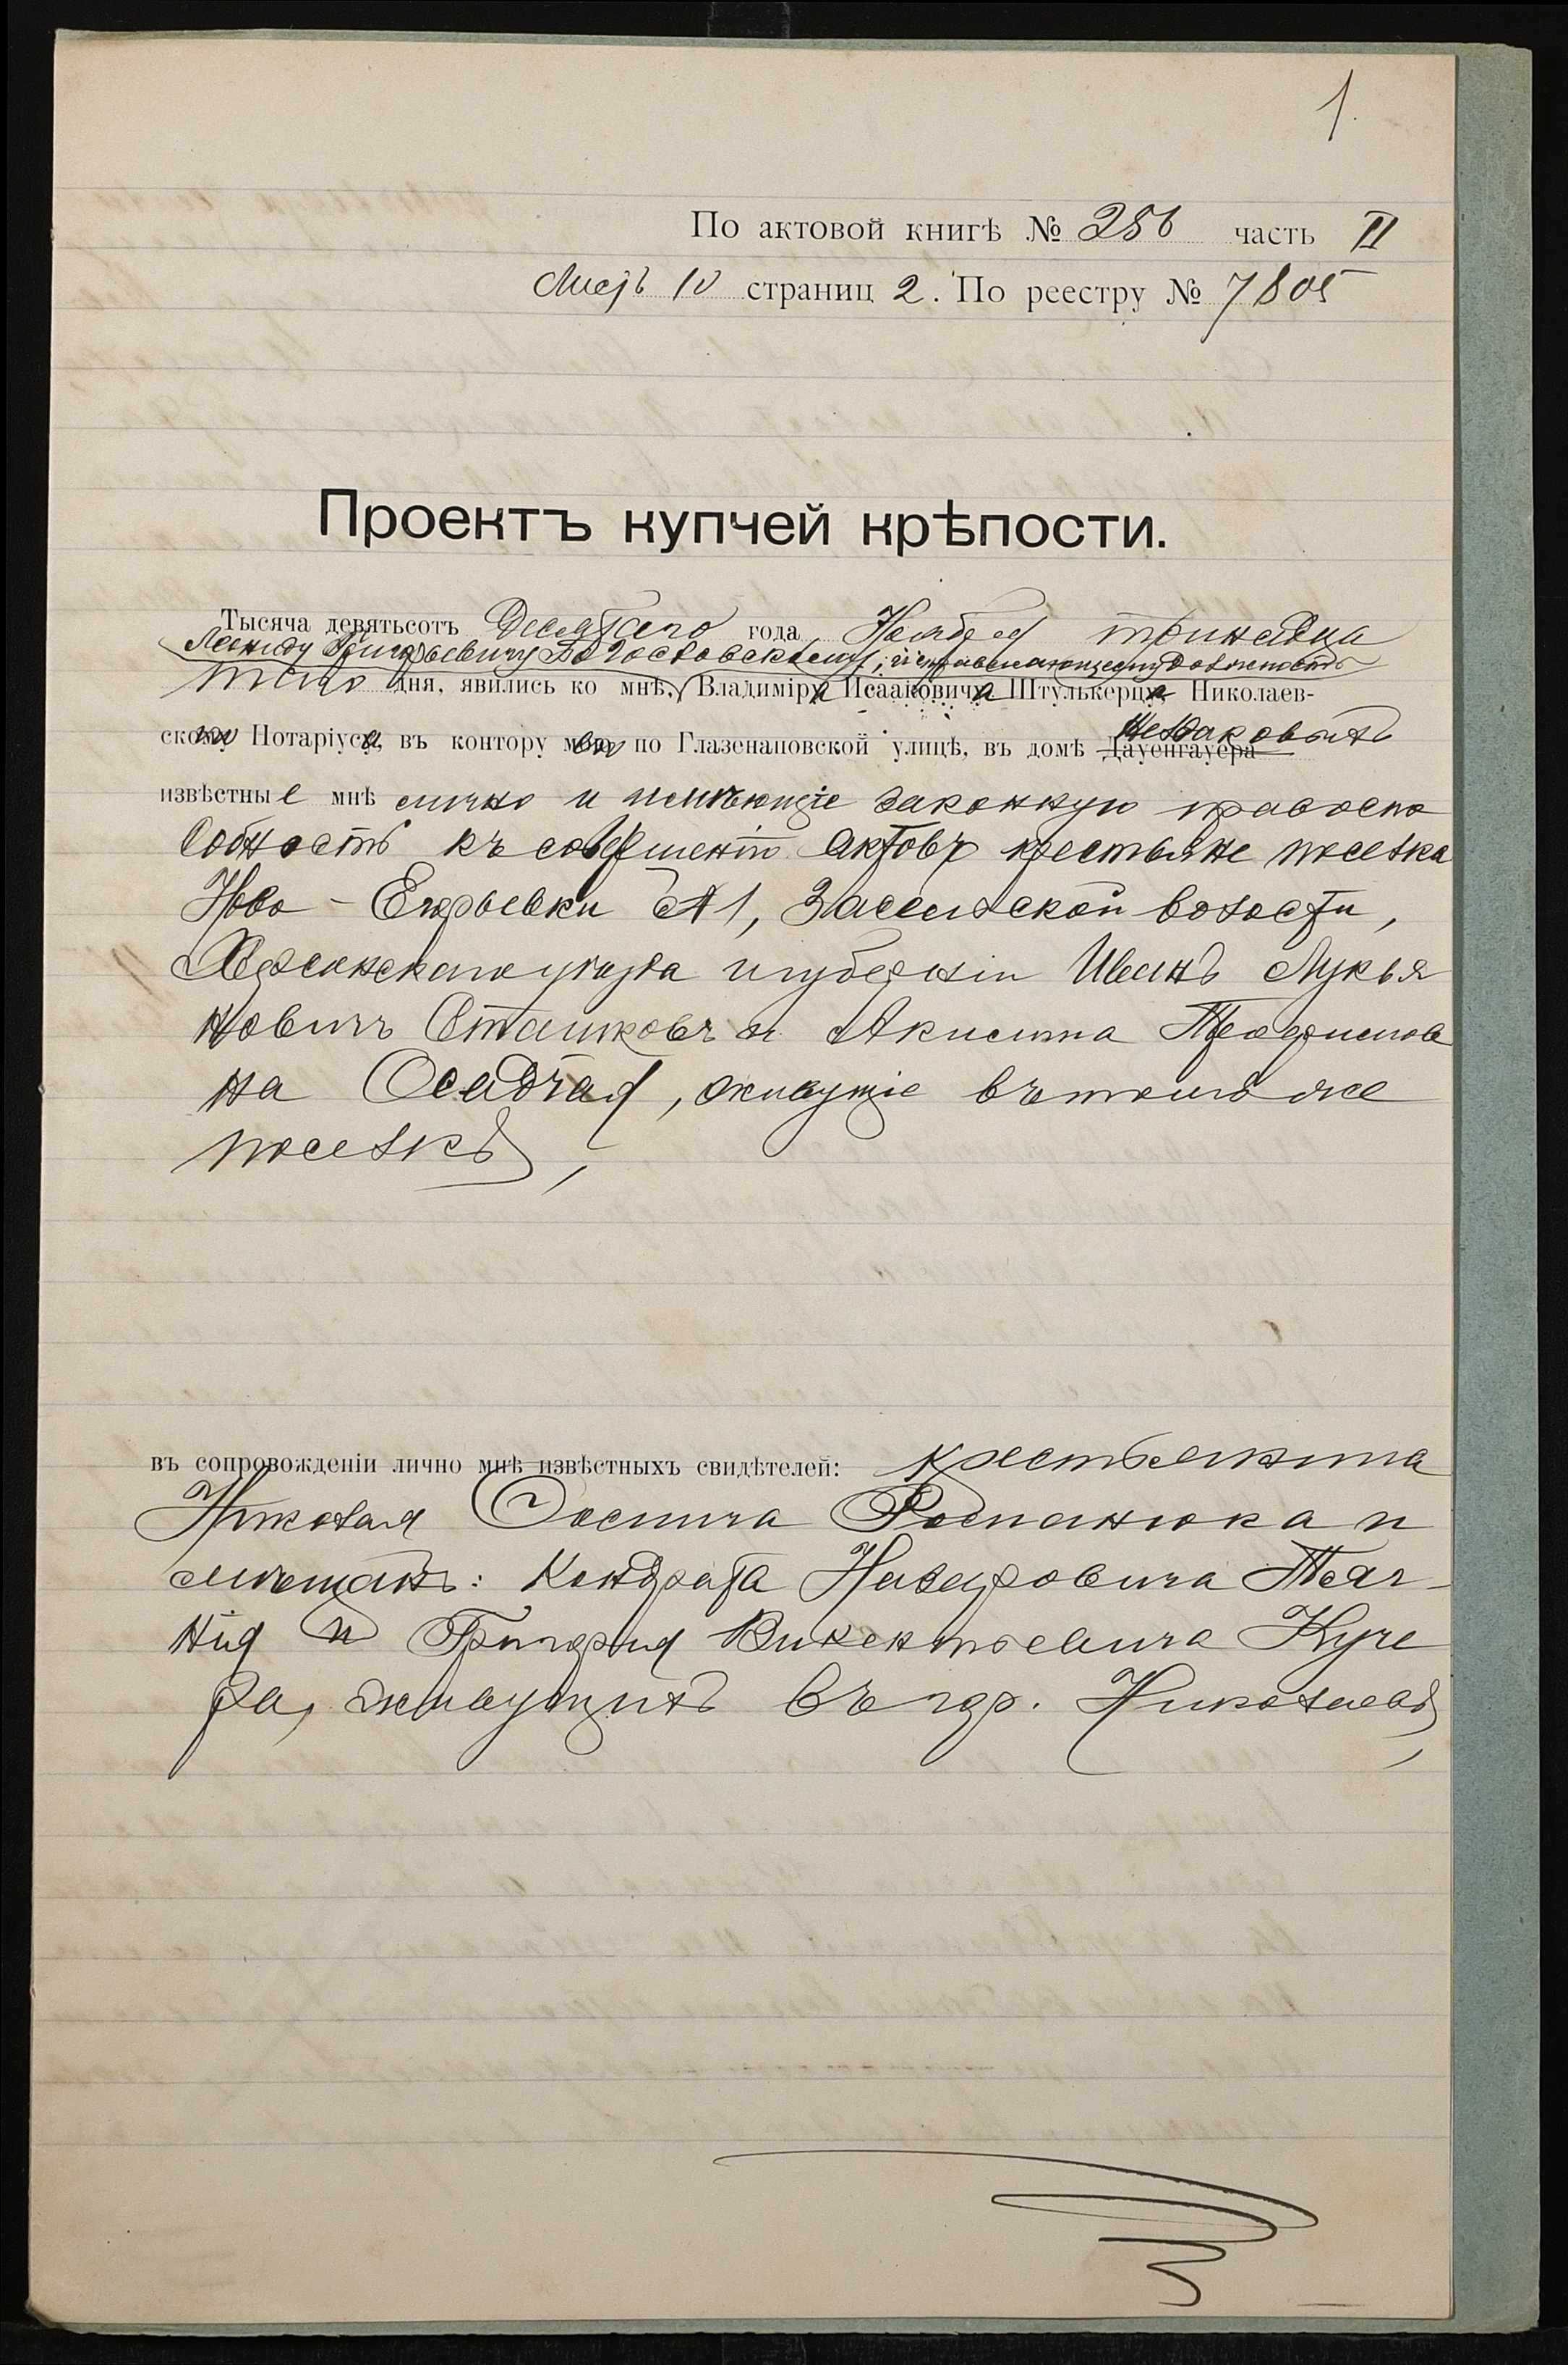 1.
По актовой книгѣ № 286 часть II
Листъ 10 страниц 2. По реестру № 7805
Проектъ купчей крѣпости.
Тысяча девятьсотъ Десятаго года Ноября тринадца
Леониду Григорьевичу исправляющему должность
таго дня, явились ко мнѣ, Владиміра Исааковича Штулькерца, Николаев-
скаго Нотаріуса, въ контору его по Глазенаповской улицѣ, въ домѣ Дауенгауера
извѣстные мнѣ лично и имѣющіе законную правоспо
собность къ совершенію актовъ крестьяне поселка
Ново-Егорьевки № 1, Засельской волости,
Херсонскаго уѣзда и губерніи Иванъ Лукья
новичъ Сташковъ и Акилина Трофимов
на Осадчая, живущіе въ томъ же
поселкѣ,
въ сопровожденіи лично мнѣ извѣстныхъ свидѣтелей: крестьянина
Николая Осипа Романюка и
мѣщанъ: Кондрата Назаровича
нія и Григорія Викентьевича Куче
ра, живущихъ въ гор. Николаевѣ,